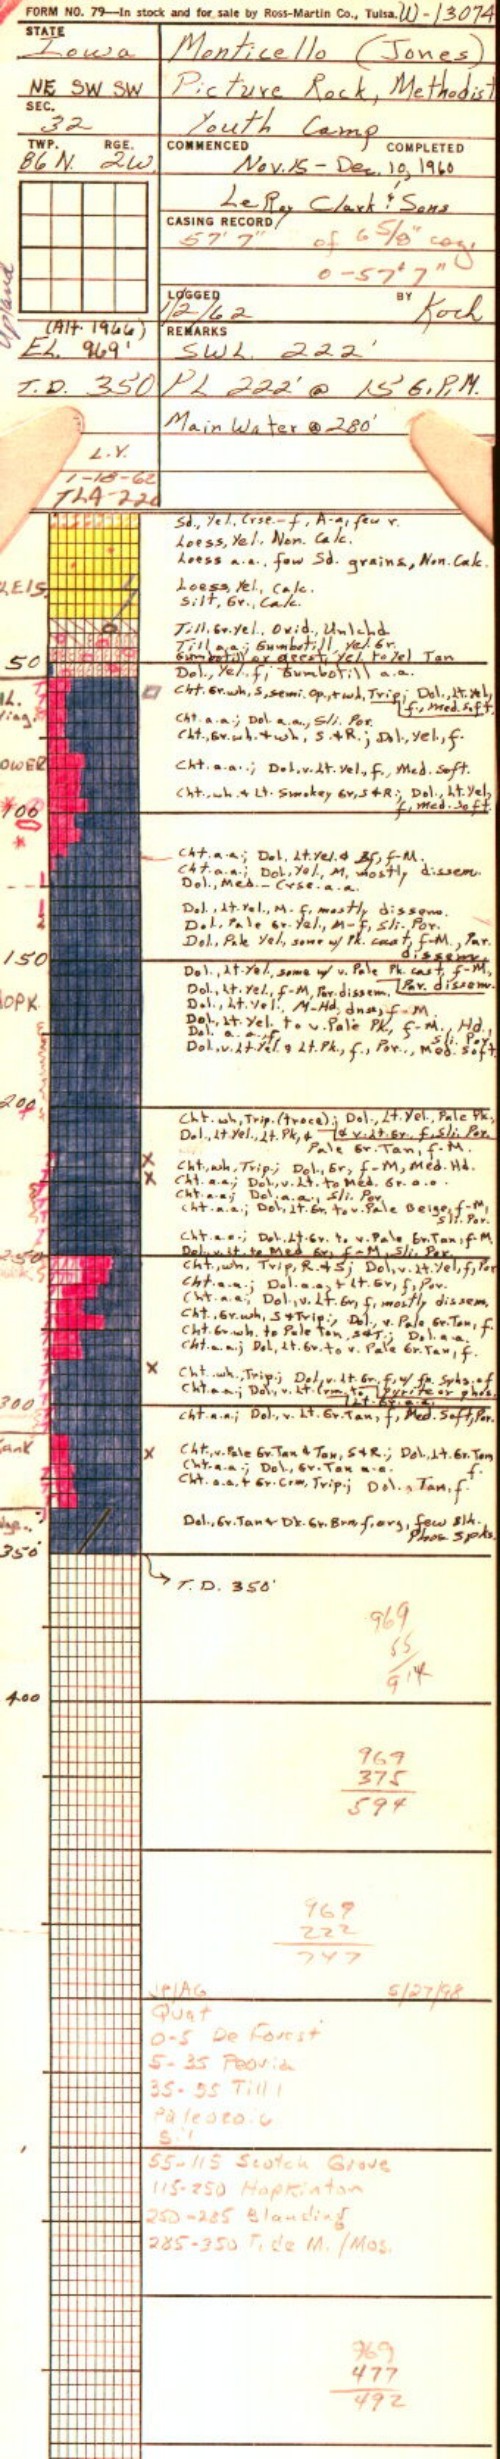 FORM NO. 79—In stock and for sale by Ross-Martin Co., Tulsa. W-13074
STATE
Iowa
Monticello (Jones)
NE SW SW
Picture Rock, Methodist
SEC.
32
Youth Camp
TWP. RGE.
86 N. 2W.
COMMENCED COMPLETED
Nov. 15 - Dec. 10, 1960
LeRoy Clark & Sons
CASING RECORD
57' 7" of 6 5/8" csg.
0-57' 7"
Upland
LOGGED BY
1/2/62 Koch
(Alt. 1966)
EL. 969'
REMARKS
SWL 222'
T.D. 350
PL 222' @ 15 G.P.M.
Main Water @ 280'
L.Y.
1-18-62
TLA-220
Sd., Yel., Crse.-f, A-a, few r.
Loess, Yel., Non. Calc.
Loess a.a., few Sd. grains, Non. Calc.
PLEIS.
Loess, Yel., Calc.
Silt, Gr., Calc.
Till, Gr. Yel., Oxid., Unlchd
Till a.a.; Gumbotill, Yel. Gr.
Gumbotill or geest, Yel. to Yel. Tan
50
Dol., Yel., f; Gumbotill a.a.
Cht. Gr. wh, S, semi. Op., + wd, Trip; Dol., Lt. Yel.,
f., med. soft.
Cht. a.a.; Dol. a.a., Sli. Por.
Cht., Gr. wh. + wh, S + R.; Dol., Yel., f.
OWER
Cht. a.a.; Dol., v. Lt. Yel., f., Med. Soft.
Cht., wh. & Lt. Smokey Gr., S + R; Dol., Lt. Yel.,
f, med. soft.
100
Cht. a.a.; Dol. Lt. Yel. & Bf, f-M.
Cht. a.a.; Dol., Yel., M, mostly dissem.
Dol., Med.-Crse. a.a.
Dol., Lt. Yel., M-f, mostly dissem.
Dol., Pale Gr. Yel., M-f, Sli. Por.
Dol., Pale Yel., some w/ Pk. cast, f-M., Par.
dissem.
150
Dol., Lt. Yel., some w/ v. Pale Pk. cast, f-M,
Par. dissem.
Dol., Lt. Yel., f-M, Par. dissem.
HOPK.
Dol., Lt. Yel., M-Hd, dns, f-M.
Dol., Lt. Yel. to v. Pale Pk, f-M., Hd.,
Sli. Por.
Dol. a.a., f
Dol., v. Lt. Yel. & Lt. Pk., f., Por., Med. Soft
200
Cht. wh, Trip. (trace); Dol., Lt. Yel., Pale Pk.,
& v. Lt. Gr., f, Sli. Por.
Dol., Lt. Yel., Lt. Pk, &
Pale Gr. Tan, f-M.
Cht., wh, Trip.; Dol., Gr, f-M, Med. Hd.
Cht. a.a.; Dol., v. Lt. to Med. Gr. a.a.
Cht. a.a.; Dol. a.a., Sli. Por.
Cht. a.a.; Dol., Lt. Gr. to v. Pale Beige, f-M,
Sli. Por.
Cht. a.a.; Dol., Lt. Gr. to v. Pale Gr. Tan, f-M.
250
Dol., v. Lt. to Med Gr, f-M, Sli. Por.
Cht., wh, Trip, R. + S; Dol., v. Lt. Yel., f, Por
Cht. a.a.; Dol. a.a. + Lt. Gr, f, Por.
Cht. a.a.; Dol., v. Lt. Gr, f, mostly dissem.
Cht., Gr. wh, S + Trip.; Dol., v. Pale Gr. Tan, f.
Cht. Gr. wh. to Pale Tan, S + T.; Dol. a.a.
Cht. a.a.; Dol., Lt. Gr. to v. Pale Gr. Tan, f.
Cht., wh., Trip.; Dol., v. Lt. Gr., f, w/ fn. Spks. of
pyrite or phos.
Cht. a.a.; Dol., v. Lt. Crm. to
Lt. Gr. a.a.
300
Cht. a.a.; Dol., v. Lt. Gr. Tan, f, Med. Soft, Por.
Cht., v. Pale Gr. Tan & Tan, S + R.; Dol., Lt. Gr. Tan
f.
Cht. a.a.; Dol., Gr. Tan a.a.
Cht. a.a. + Gr. Crm, Trip.; Dol., Tan, f.
Dol., Gr. Tan + Dk. Gr. Brn, f, arg, few blk.
Phos spks.
350'
T.D. 350'
969
55
914
400
969
375
594
969
222
747
JP/AG 5/27/98
Quat
0-5 De Forest
5-35 Peoria
35-55 Till
Paleozoic
Sil
55-115 Scotch Grove
115-250 Hopkinton
250-285 Blanding
285-350 T. de M. / Mos.
969
477
492